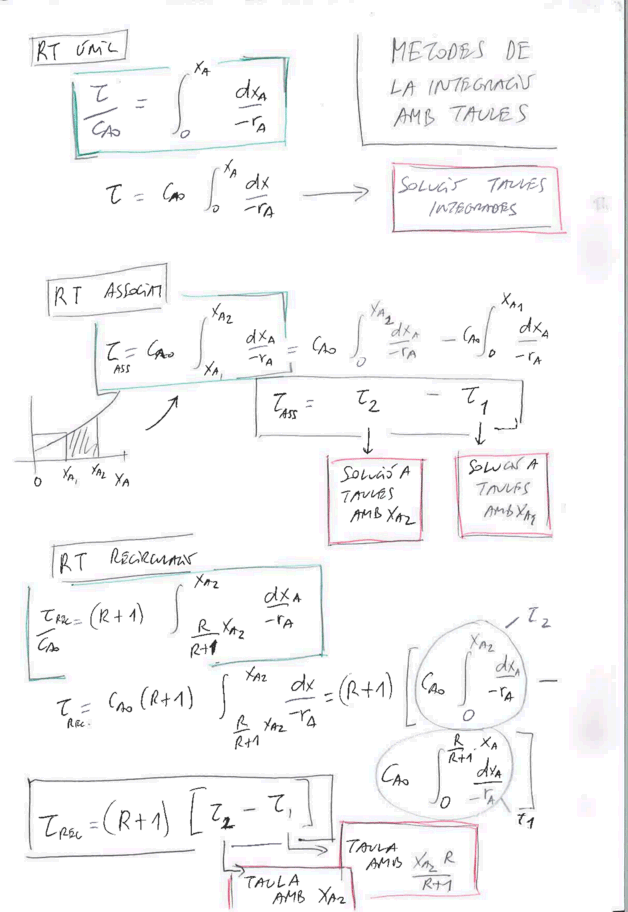 RT ÚNIC
τ/C_A0 = ∫_0^X_A dx_A/-r_A
METODES DE
LA INTEGRACIÓ
AMB TAULES
τ = C_A0 ∫_0^X_A dx/-r_A →
SOLUCIÓ TAULES
INTEGRADES
RT ASSOCIAT
τ_ASS = C_A0 ∫_X_A1^X_A2 dx_A/-r_A = C_A0 ∫_0^X_A2 dx_A/-r_A - C_A0 ∫_0^X_A1 dx_A/-r_A
τ_ASS = τ_2 - τ_1
0 X_A1 X_A2 X_A
SOLUCIÓ A
TAULES
AMB X_A2
SOLUCIÓ A
TAULES
AMB X_A1
RT RECIRCULACIÓ
τ_REC/C_A0 = (R+1) ∫_(R/R+1 X_A2)^X_A2 dx_A/-r_A
τ_REC. = C_A0 (R+1) ∫_(R/R+1 X_A2)^X_A2 dx/-r_A = (R+1) [ C_A0 ∫_0^X_A2 dx_A/-r_A -
τ_2
C_A0 ∫_0^(R/R+1 · X_A) dx_A/-r_A ]
τ_1
τ_REC = (R+1) [τ_2 - τ_1]
TAULA
AMB X_A2
TAULA
AMB X_A2 R/R+1